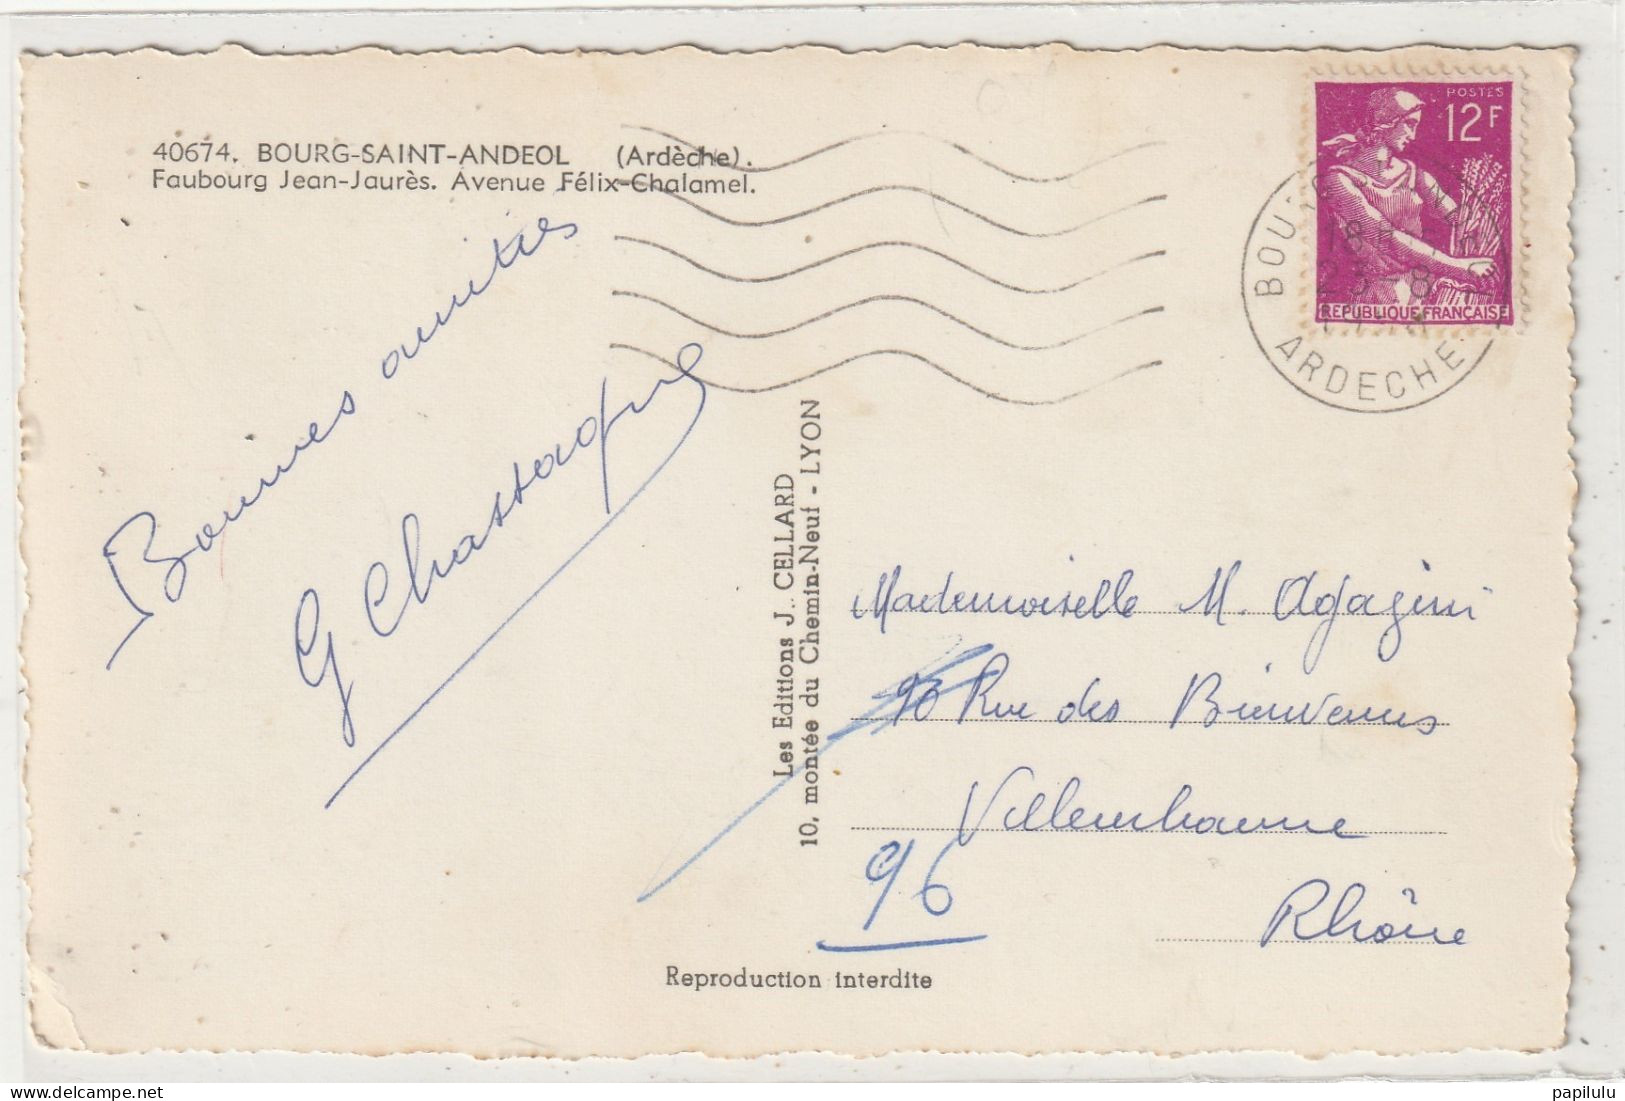 40674. BOURG-SAINT-ANDEOL (Ardèche).
Faubourg Jean-Jaurès. Avenue Félix-Chalamel.
POSTES
12F
REPUBLIQUE FRANÇAISE
18
23-8
ARDECHE
Bonnes amitiés
G Chassagne
Les Editions J. CELLARD
10, montée du Chemin-Neuf - LYON
Mademoiselle M. Agagini
Rue des Bienvenus
Villeurbanne
96
Rhône
Reproduction interdite
papilulu